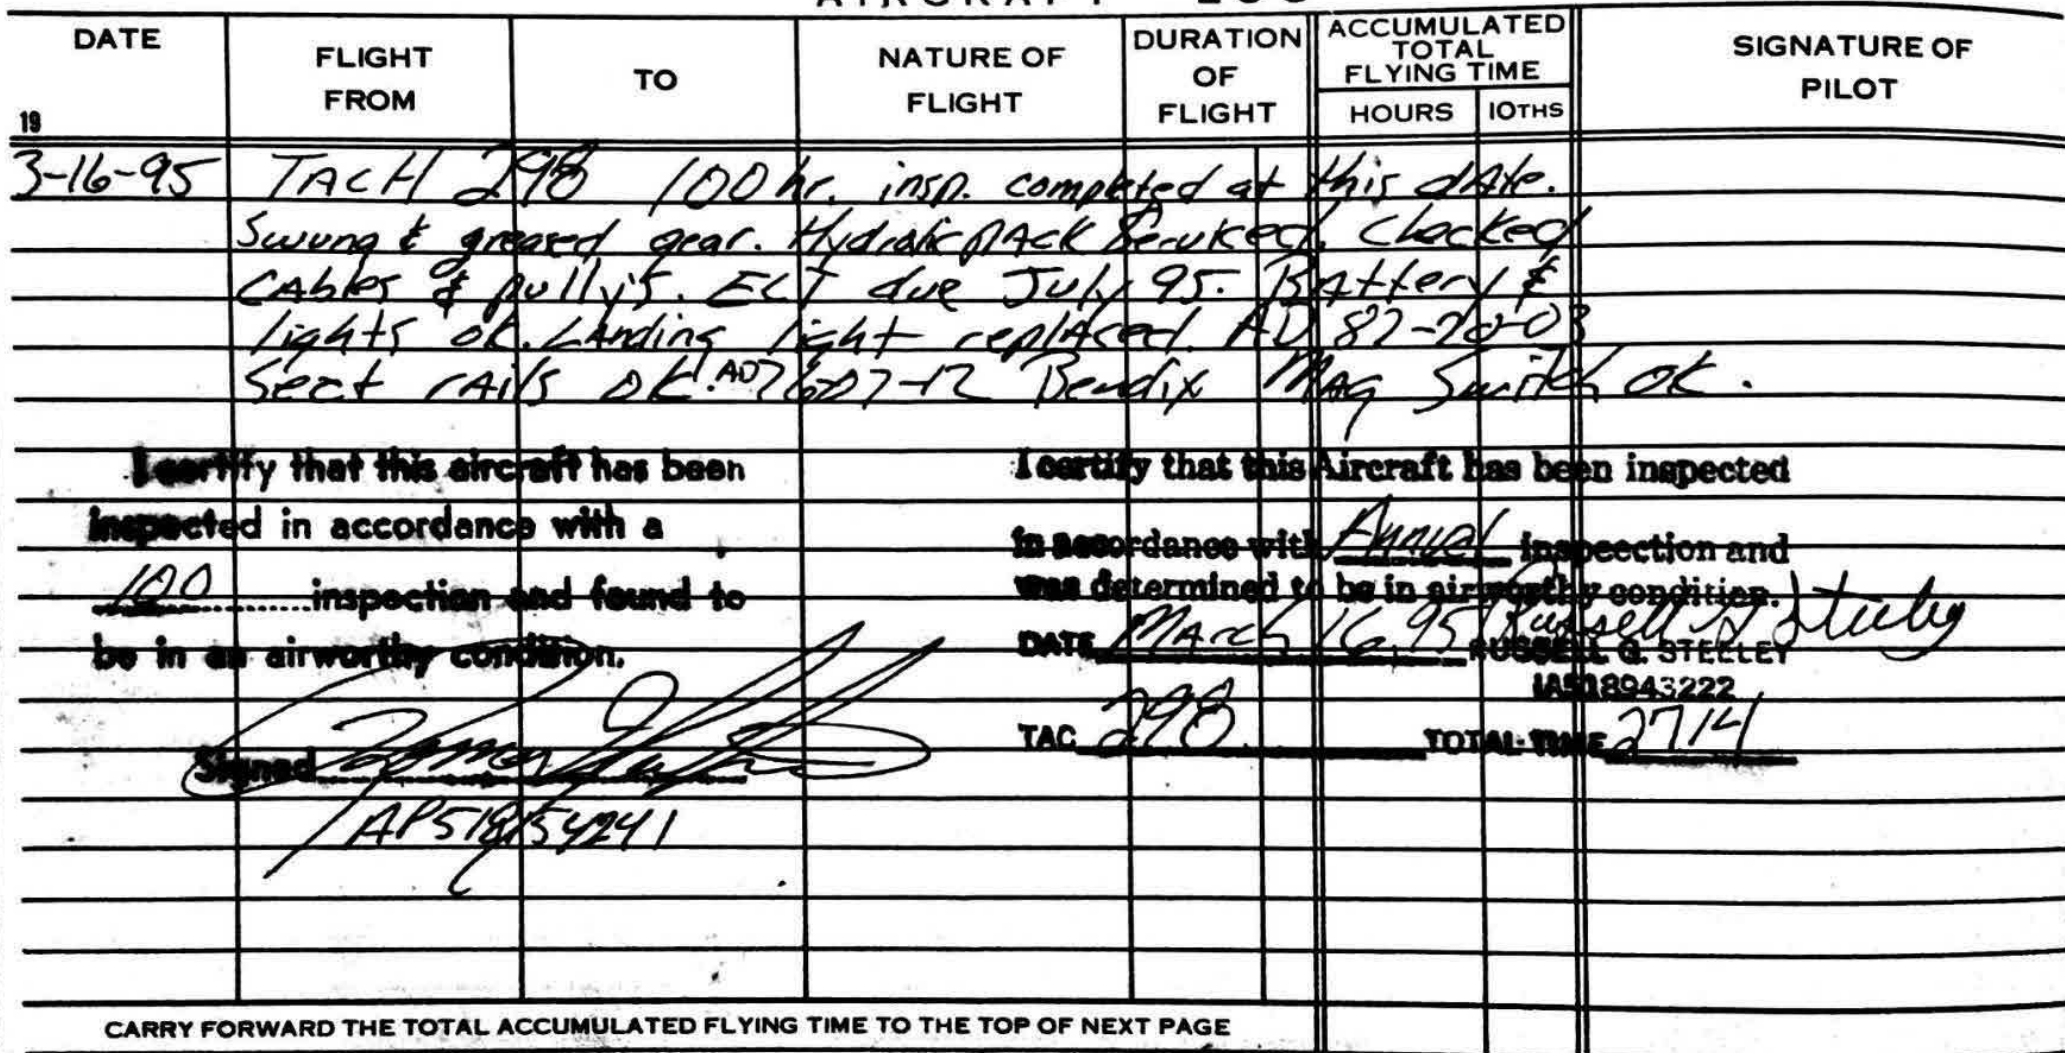 AIRCRAFT LOG
DATE
19
FLIGHT FROM
TO
NATURE OF FLIGHT
DURATION OF FLIGHT
ACCUMULATED TOTAL FLYING TIME
HOURS
10THS
SIGNATURE OF PILOT
3-16-95 TACH 298 100 hr. insp. completed at this date.
Swung & greased gear. Hydralic pack serviced. Checked
cables & pully's. ELT due July 95. Battery &
lights ok. Landing light replaced. AD 87-20-03
Seat rails ok. AD 7607-12 Bendix Mag Switch ok.
I certify that this aircraft has been
inspected in accordance with a
100 inspection and found to
be in an airworthy condition.
Signed
AP518154241
I certify that this Aircraft has been inspected
in accordance with Annual inspeection and
was determined to be in airworthy condition.
DATE March 16, 95 Russell G Steeley
RUSSELL G. STEELEY
IA518943222
TAC 298 TOTAL TIME 2714
CARRY FORWARD THE TOTAL ACCUMULATED FLYING TIME TO THE TOP OF NEXT PAGE